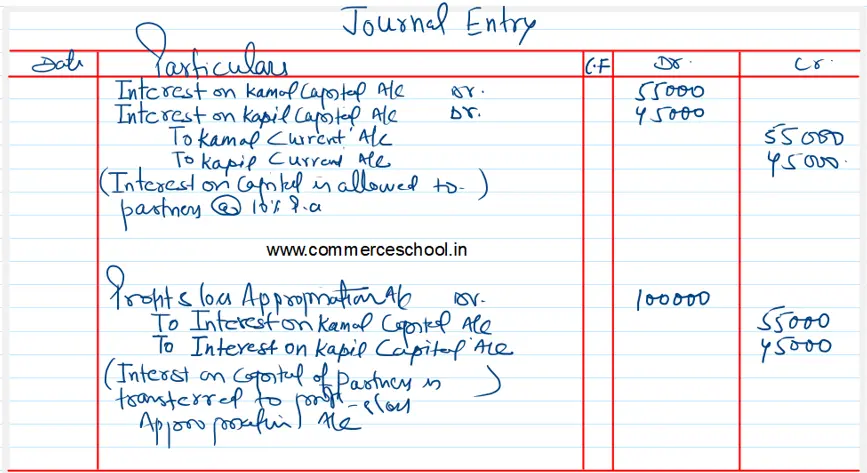 Journal Entry
Date Particulars C.F Dr. Cr.
Interest on Kamal Capital A/c Dr. 55000
Interest on Kapil Capital A/c Dr. 45000
To Kamal Current A/c 55000
To Kapil Current A/c 45000.
(Interest on Capital is allowed to )
partners @ 10% P.a
www.commerceschool.in
Profit & loss Appropriation A/c Dr. 100000
To Interest on Kamal Capital A/c 55000
To Interest on Kapil Capital A/c 45000
(Interest on Capital of Partners is )
transferred to profit & loss
Appropriation A/c